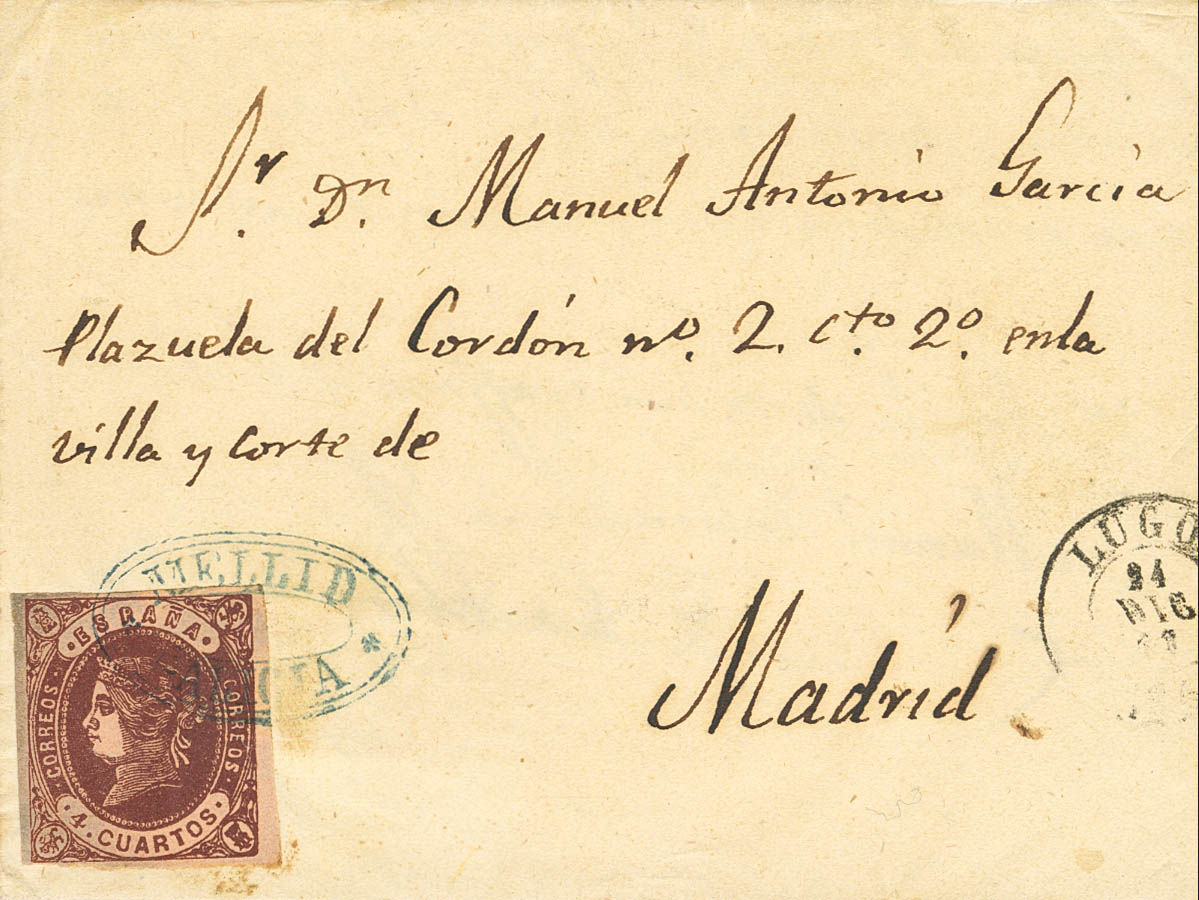 Sr. Dn. Manuel Antonio García
Plazuela del Cordón no. 2. cto. 2o. enla
villa y corte de
Madrid
MELLID
GALICIA
LUGO
DIC
ESPAÑA
CORREOS
CORREOS
4. CUARTOS